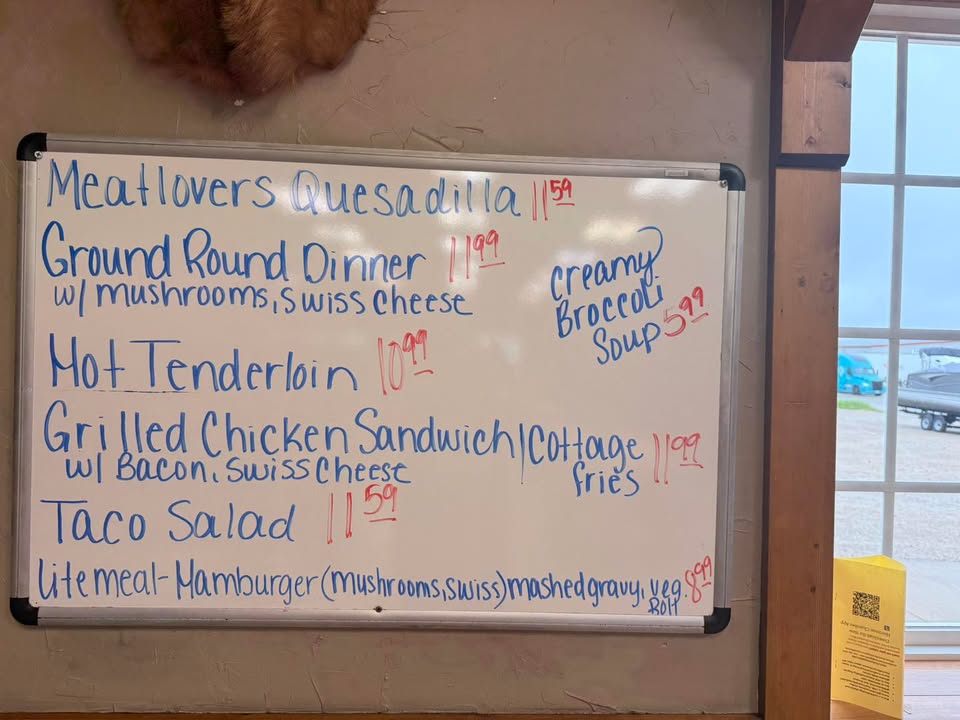 Meatlovers Quesadilla 11 59
Ground Round Dinner 11 99
w/ mushrooms, swiss cheese
creamy
Broccoli
Soup 5 99
Hot Tenderloin 10 99
Grilled Chicken Sandwich/Cottage fries 11 99
w/ Bacon, swiss cheese
Taco Salad 11 59
Lite meal- Hamburger (mushrooms, swiss) mashed gravy, veg. 8 99
Roll